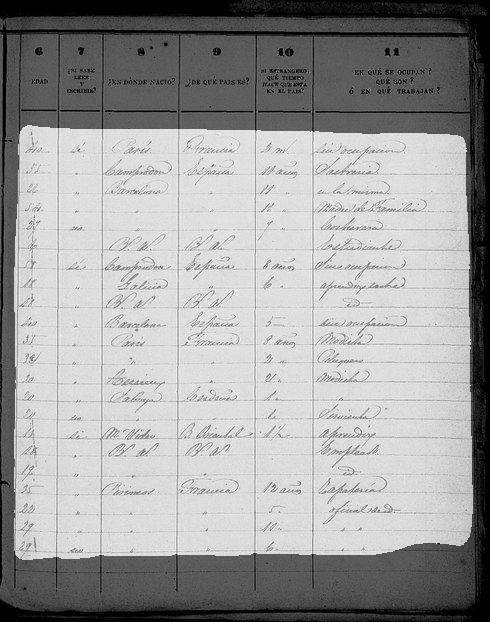 6 7 8 9 10 11
EDAD ¿SI SABE LEER Y ESCRIBIR? ¿EN DÓNDE NACIÓ? ¿DE QUÉ PAIS ES? SI ESTRANGERO, QUÉ TIEMPO HACE QUE ESTÁ EN EL PAIS? EN QUÉ SE OCUPAN? QUÉ SON? Ó EN QUÉ TRABAJAN?
si Paris Francia 2 m sin ocupacion
" Camprodon España 10 años Sastreria
26 " Barcelona " 11 " en la misma
" " " 11 " Madre de Familia
no " " 7 " Costurera
" Bs As Bs As Estudiante
si Camprodon España 8 años Sin ocupacion
18 " Galicia " 6 "
" Bs As Bs As id
" Barcelona España 5 sin ocupacion
" Paris Francia 8 años Modista
" " " 2 "
20 " " 2 " Modista
20 " Saboya Cerdeña "
no " " Sirvienta
si Mte Video B. Oriental aprendiz
" Bs As Bs As Empleado
19 " " " id
25 " Pirineos Francia 12 años Zapateria
22 " " " 5 " oficial
29 " " " 10 " " "
29 no " " 6 " " "